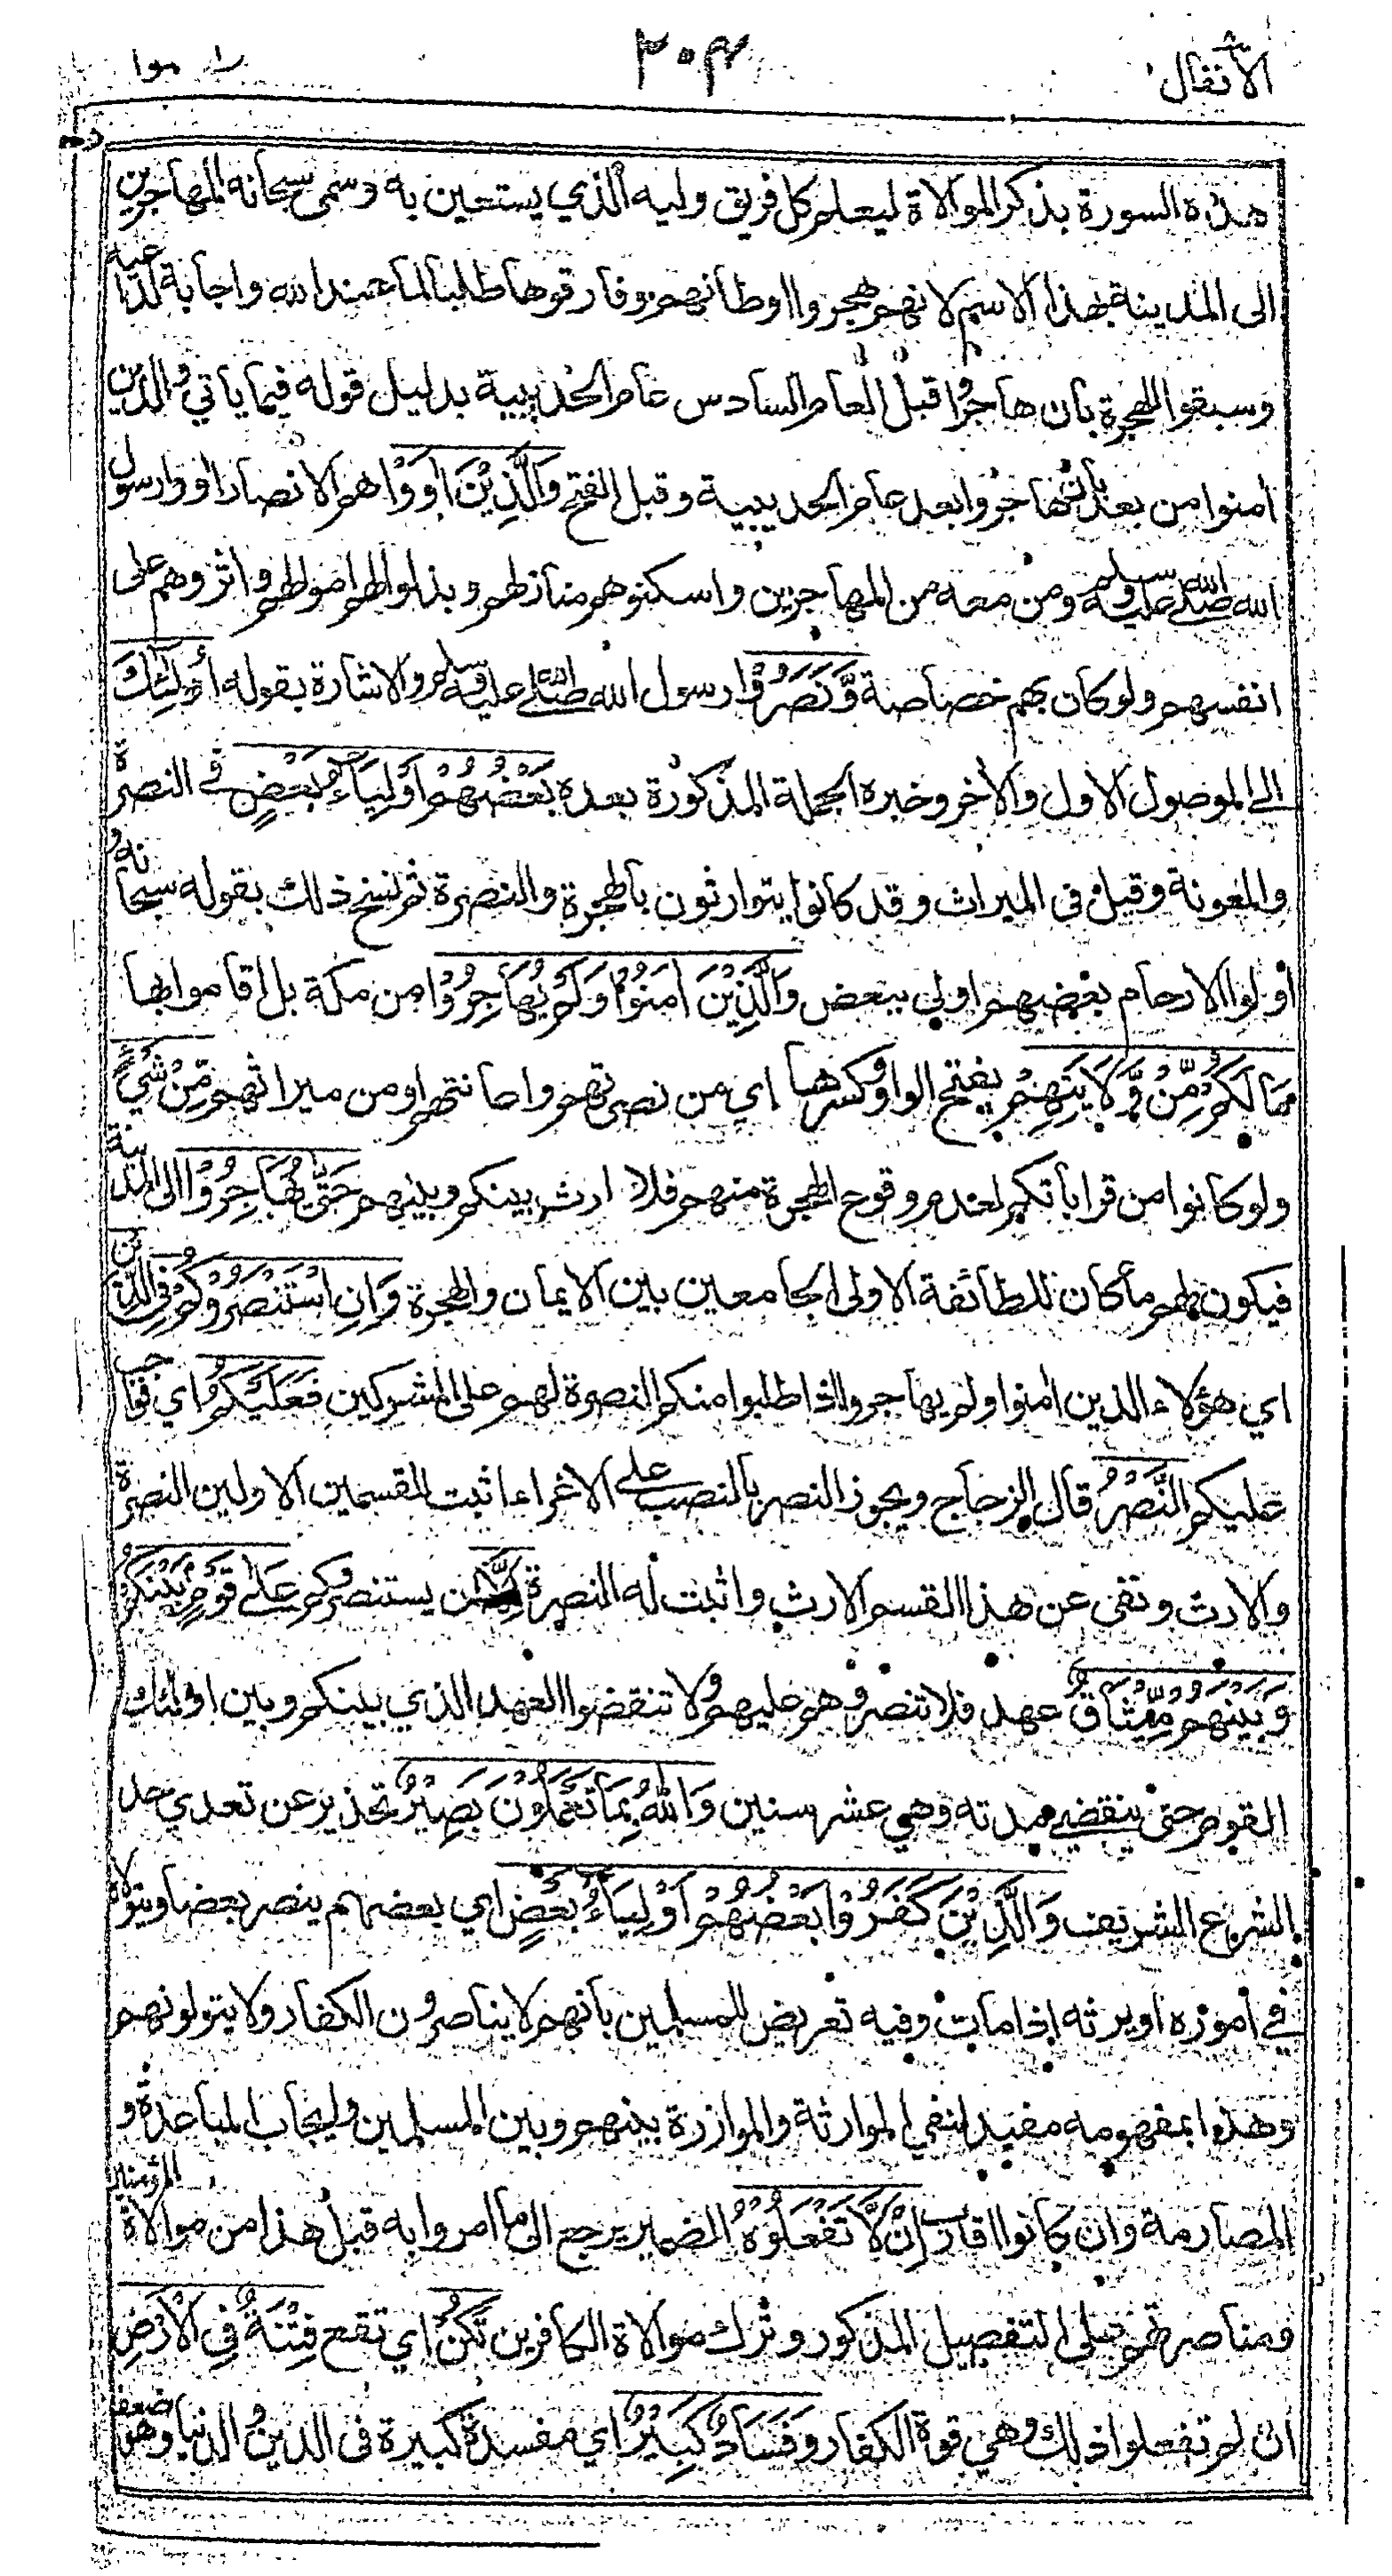 الأنفال
٣٠٤
واعلموا ١٠
هذه السورة بذكر الموالاة ليعلم كل فريق وليه الذي يستعين به وسمى سبحانه المهاجرين
الى المدينة بهذا الاسم لانهم هجروا اوطانهم وفارقوها طلبا لما عند الله واجابة لداعيه
وسبقوا للهجرة بان هاجروا قبل العام السادس عام الحديبية بدليل قوله فيما ياتي والذين
امنوا من بعد بانهم هاجروا بعد عام الحديبية وقبل الفتح وَالَّذِيْنَ اٰوَوْا هم الانصار اووا رسول
الله صلى الله عليه وسلم ومن معه من المهاجرين واسكنوهم منازلهم وبذلوا لهم اموالهم واثروهم على
انفسهم ولو كان بهم خصاصة وَّنَصَرُوْا رسول الله صلى الله عليه وسلم والاشارة بقوله اُولٰئِكَ
الى الموصول الاول والأخر وخبره الجملة المذكورة بعده بَعْضُهُمْ اَوْلِيَآءُ بَعْضٍ في النصرة
والمعونة وقيل في الميراث وقد كانوا يتوارثون بالهجرة والنصرة ثم نسخ ذلك بقوله سبحانه و
أولوا الارحام بعضهم اولى ببعض وَالَّذِيْنَ اٰمَنُوْا وَلَمْ يُهَاجِرُوْا من مكة بل اقاموا بها
مَا لَكُمْ مِّنْ وَّلَايَتِهِمْ بفتح الواو وكسرها اي من نصرتهم واعانتهم او من ميراثهم مِّنْ شَيْءٍ
ولو كانوا من قراباتكم لعدم وقوع الهجرة منهم فلا ارث بينكم وبينهم حَتّٰى يُهَاجِرُوْا الى المدينة
فيكون لهم ما كان للطائفة الاولى الجامعين بين الايمان والهجرة وَاِنِ اسْتَنْصَرُوْكُمْ فِى الدِّيْنِ
اي هؤلاء الذين امنوا ولم يهاجروا اذا طلبوا منكم النصرة لهم على المشركين فَعَلَيْكُمُ اي فواجب
عليكم النَّصْرُ قال الزجاج ويجوز النصر بالنصب على الاغراء اثبت للقسمين الاولين النصرة
والارث ونفى عن هذا القسم الارث واثبت له النصرة اِلَّا ان يستنصروكم عَلٰى قَوْمٍ بَيْنَكُمْ
وَبَيْنَهُمْ مِّيْثَاقٌ عهد فلا تنصروهم عليهم ولا تنقضوا العهد الذي بينكم وبين اولئك
القوم حتى ينقضي مدته وهي عشر سنين وَاللّٰهُ بِمَا تَعْمَلُوْنَ بَصِيْرٌ تحذير عن تعدي حد
الشرع الشريف وَالَّذِيْنَ كَفَرُوْا بَعْضُهُمْ اَوْلِيَآءُ بَعْضٍ اي بعضهم ينصر بعضا ويتولاه
في أموره او يرثه إذا مات وفيه تعريض للمسلمين بانهم لا يناصرون الكفار ولا يتولونهم
وهذا بمفهومه مفيد لنفي الموارثة والموازرة بينهم وبين المسلمين وايجاب المباعدة و
المصارمة وان كانوا اقارب اِنْ لَّا تَفْعَلُوْهُ الضمير يرجع الى ما امروا به قبل هذا من موالاة المؤمنين
ومناصرتهم على التفصيل المذكور وترك موالاة الكافرين تَكُنْ اي تقع فِتْنَةٌ فِى الْاَرْضِ
ان لم تفعلوا ذلك وهي قوة الكفار وَفَسَادٌ كَبِيْرٌ اي مفسدة كبيرة في الدين والدنيا وهو ضعف